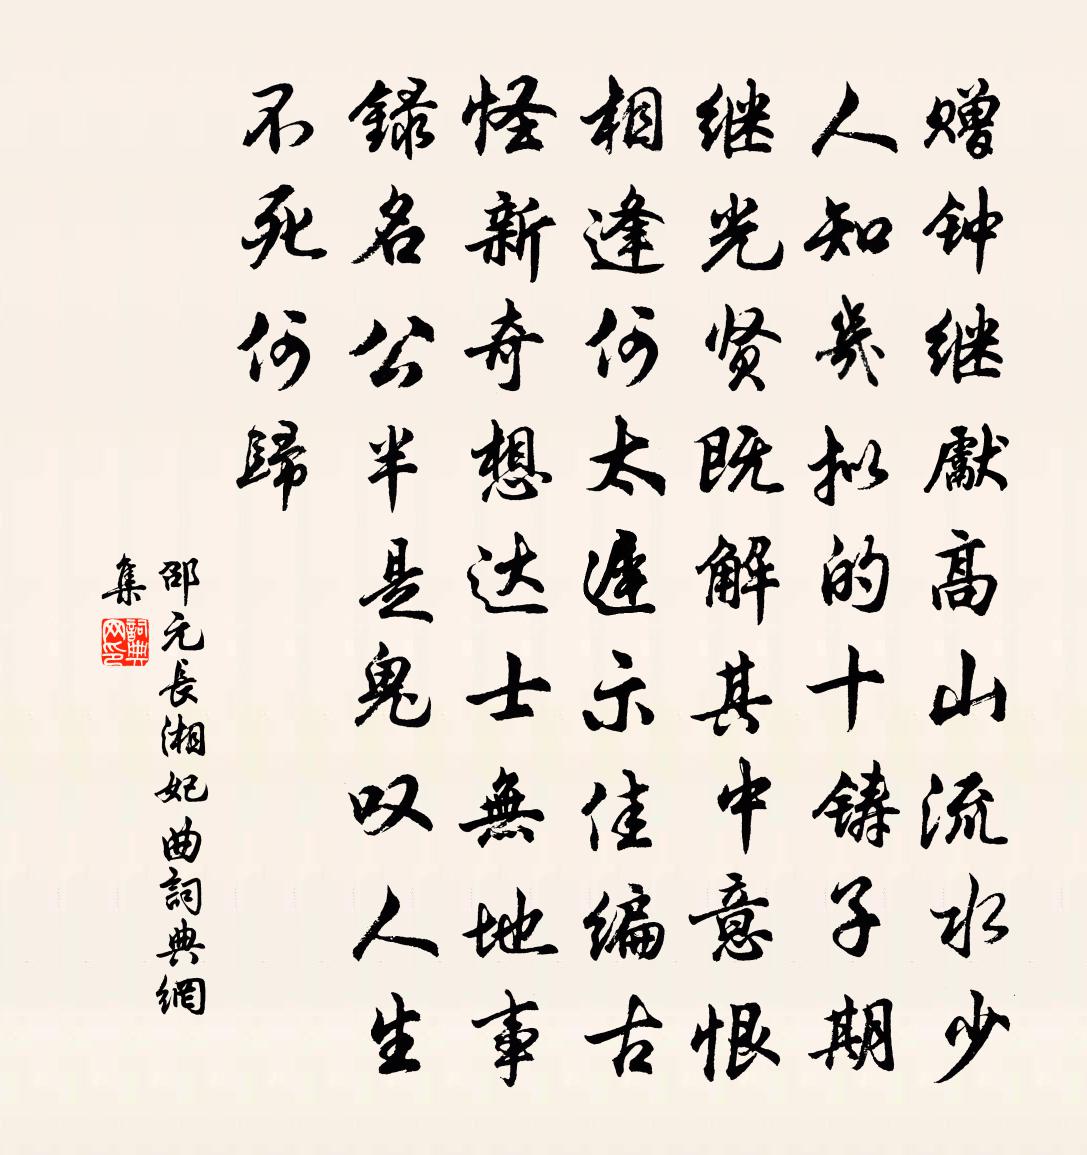 赠钟继獻高山流水少
人知㡬拟的十鑄子期
继光贤既解其中意恨
相逢何太遲示佳编古
怪新奇想达士無地事
録名公半是鬼叹人生
不死何歸
邵元長湘妃曲詞典網
集
詞典网印